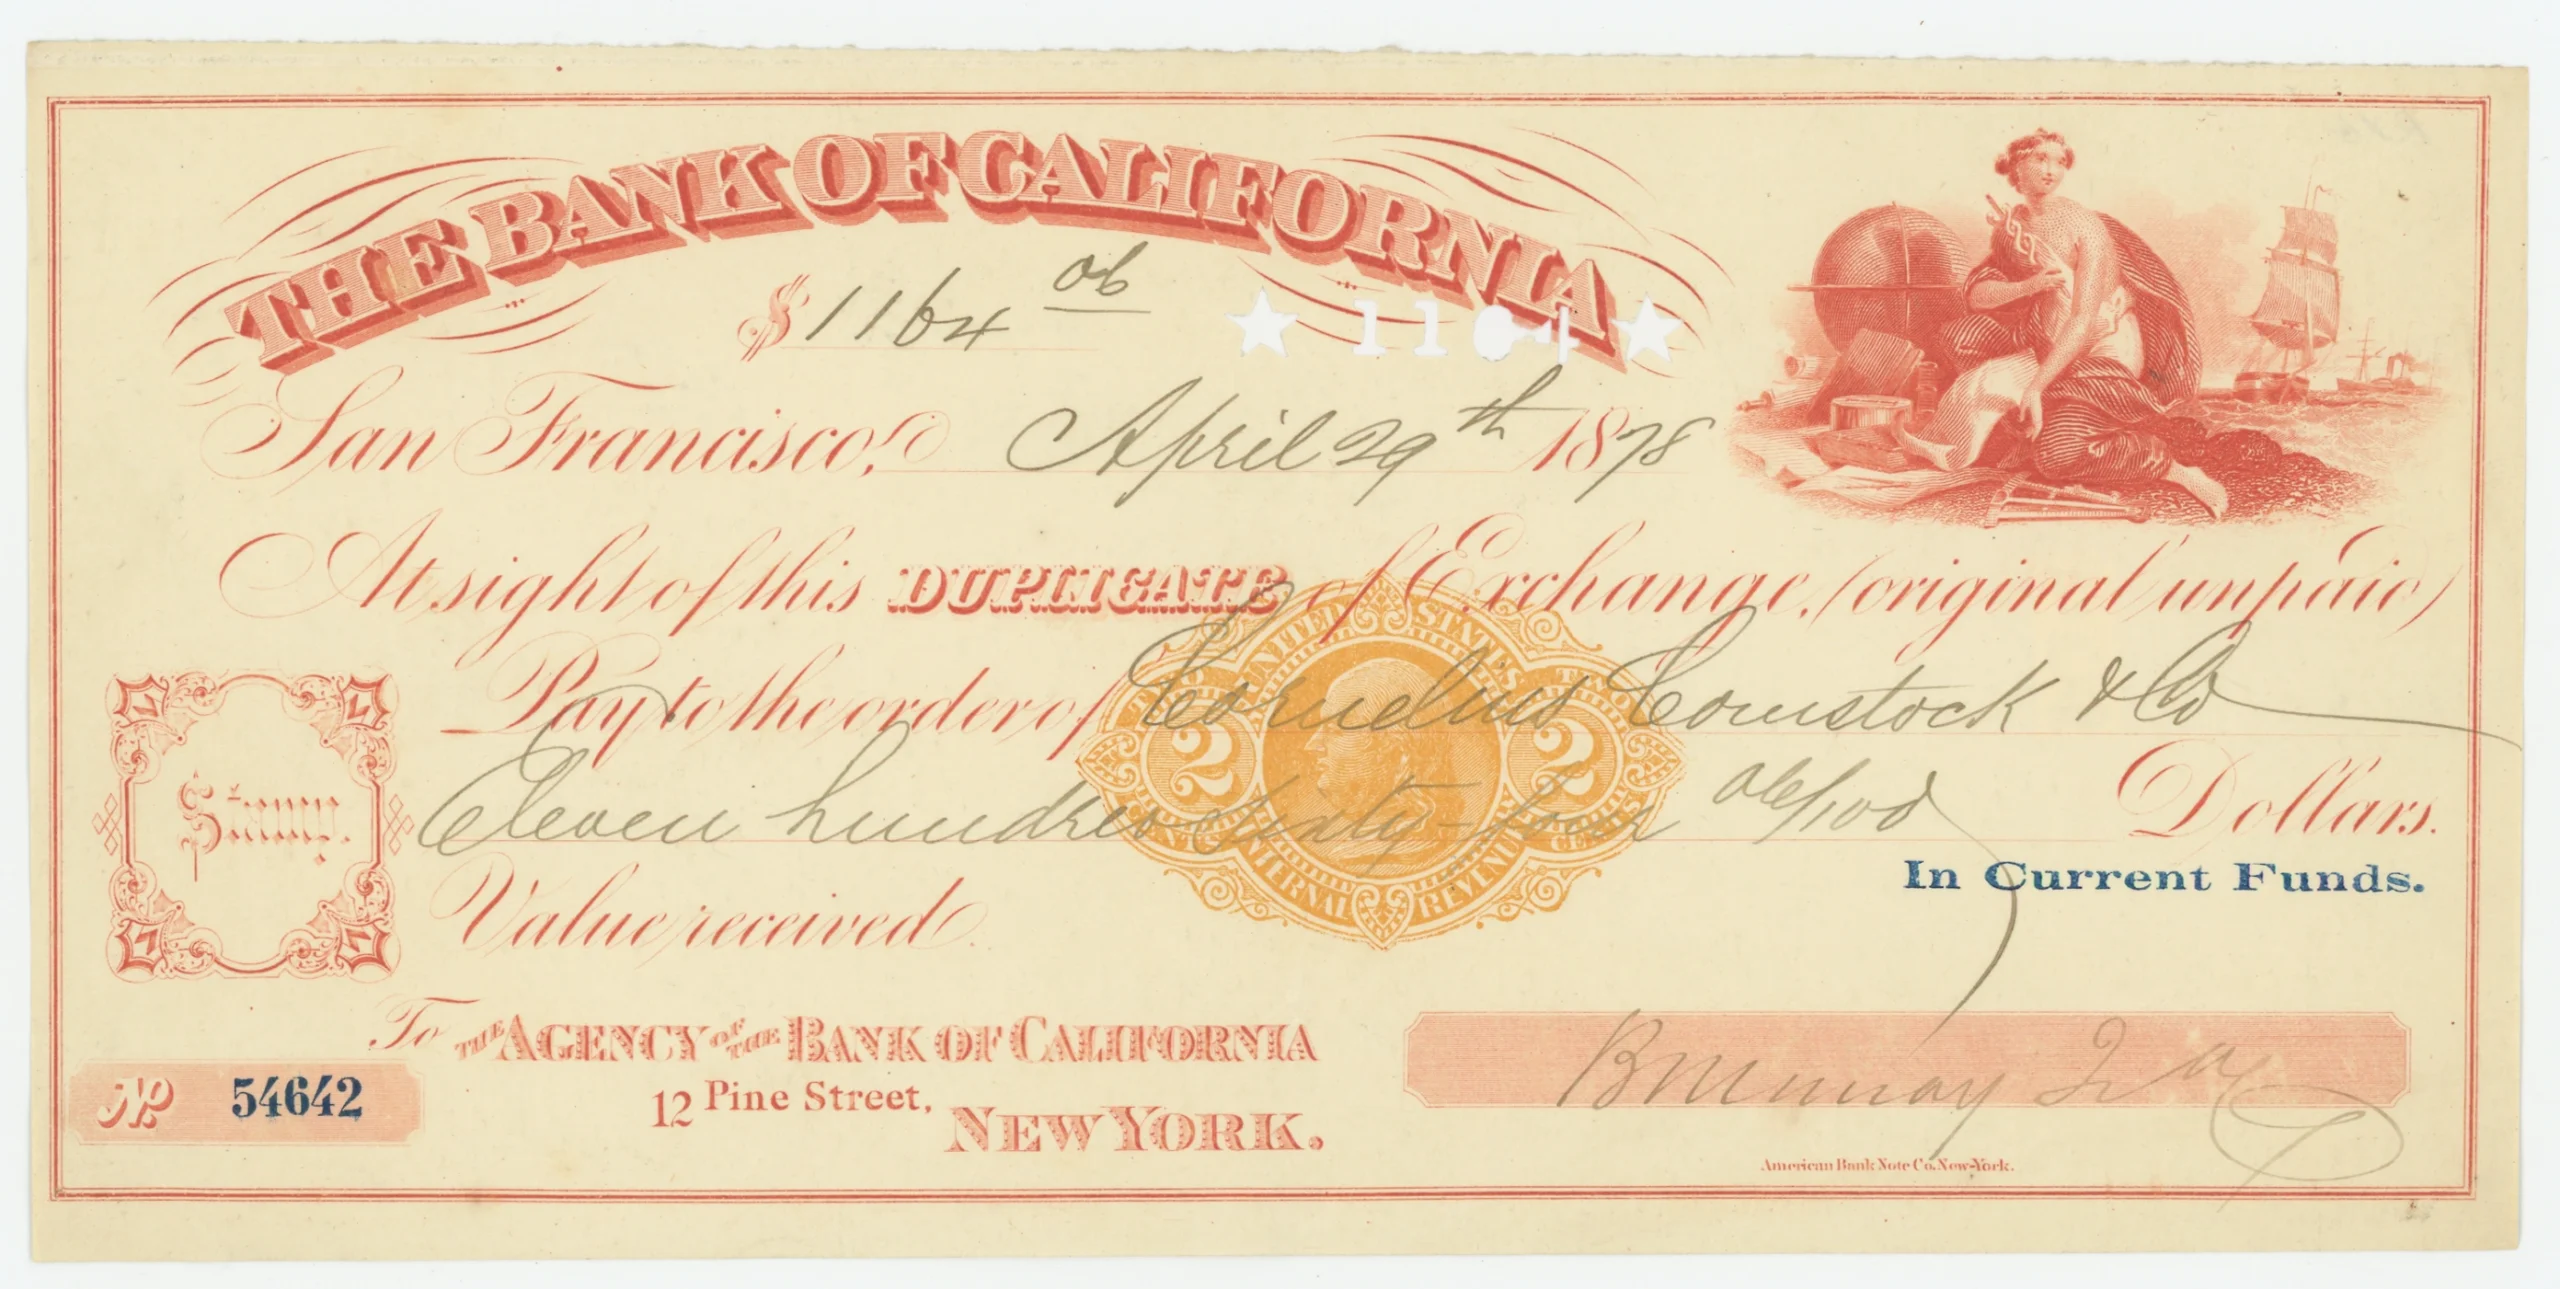 THE BANK OF CALIFORNIA
$ 1164 06
★ 1164 ★
San Francisco, April 29th 1878
At sight of this DUPLICATE of Exchange, (original unpaid)
Pay to the order of Cornelius Comstock & Co
Eleven hundred sixty-four 06/100 Dollars.
In Current Funds.
Stamp.
UNITED STATES
TWO TWO
2 2
CENTS CENTS
INTERNAL REVENUE
Value received.
To THE AGENCY OF THE BANK OF CALIFORNIA
No. 54642
12 Pine Street,
NEW YORK.
BMurray Jr
American Bank Note Co. New-York.